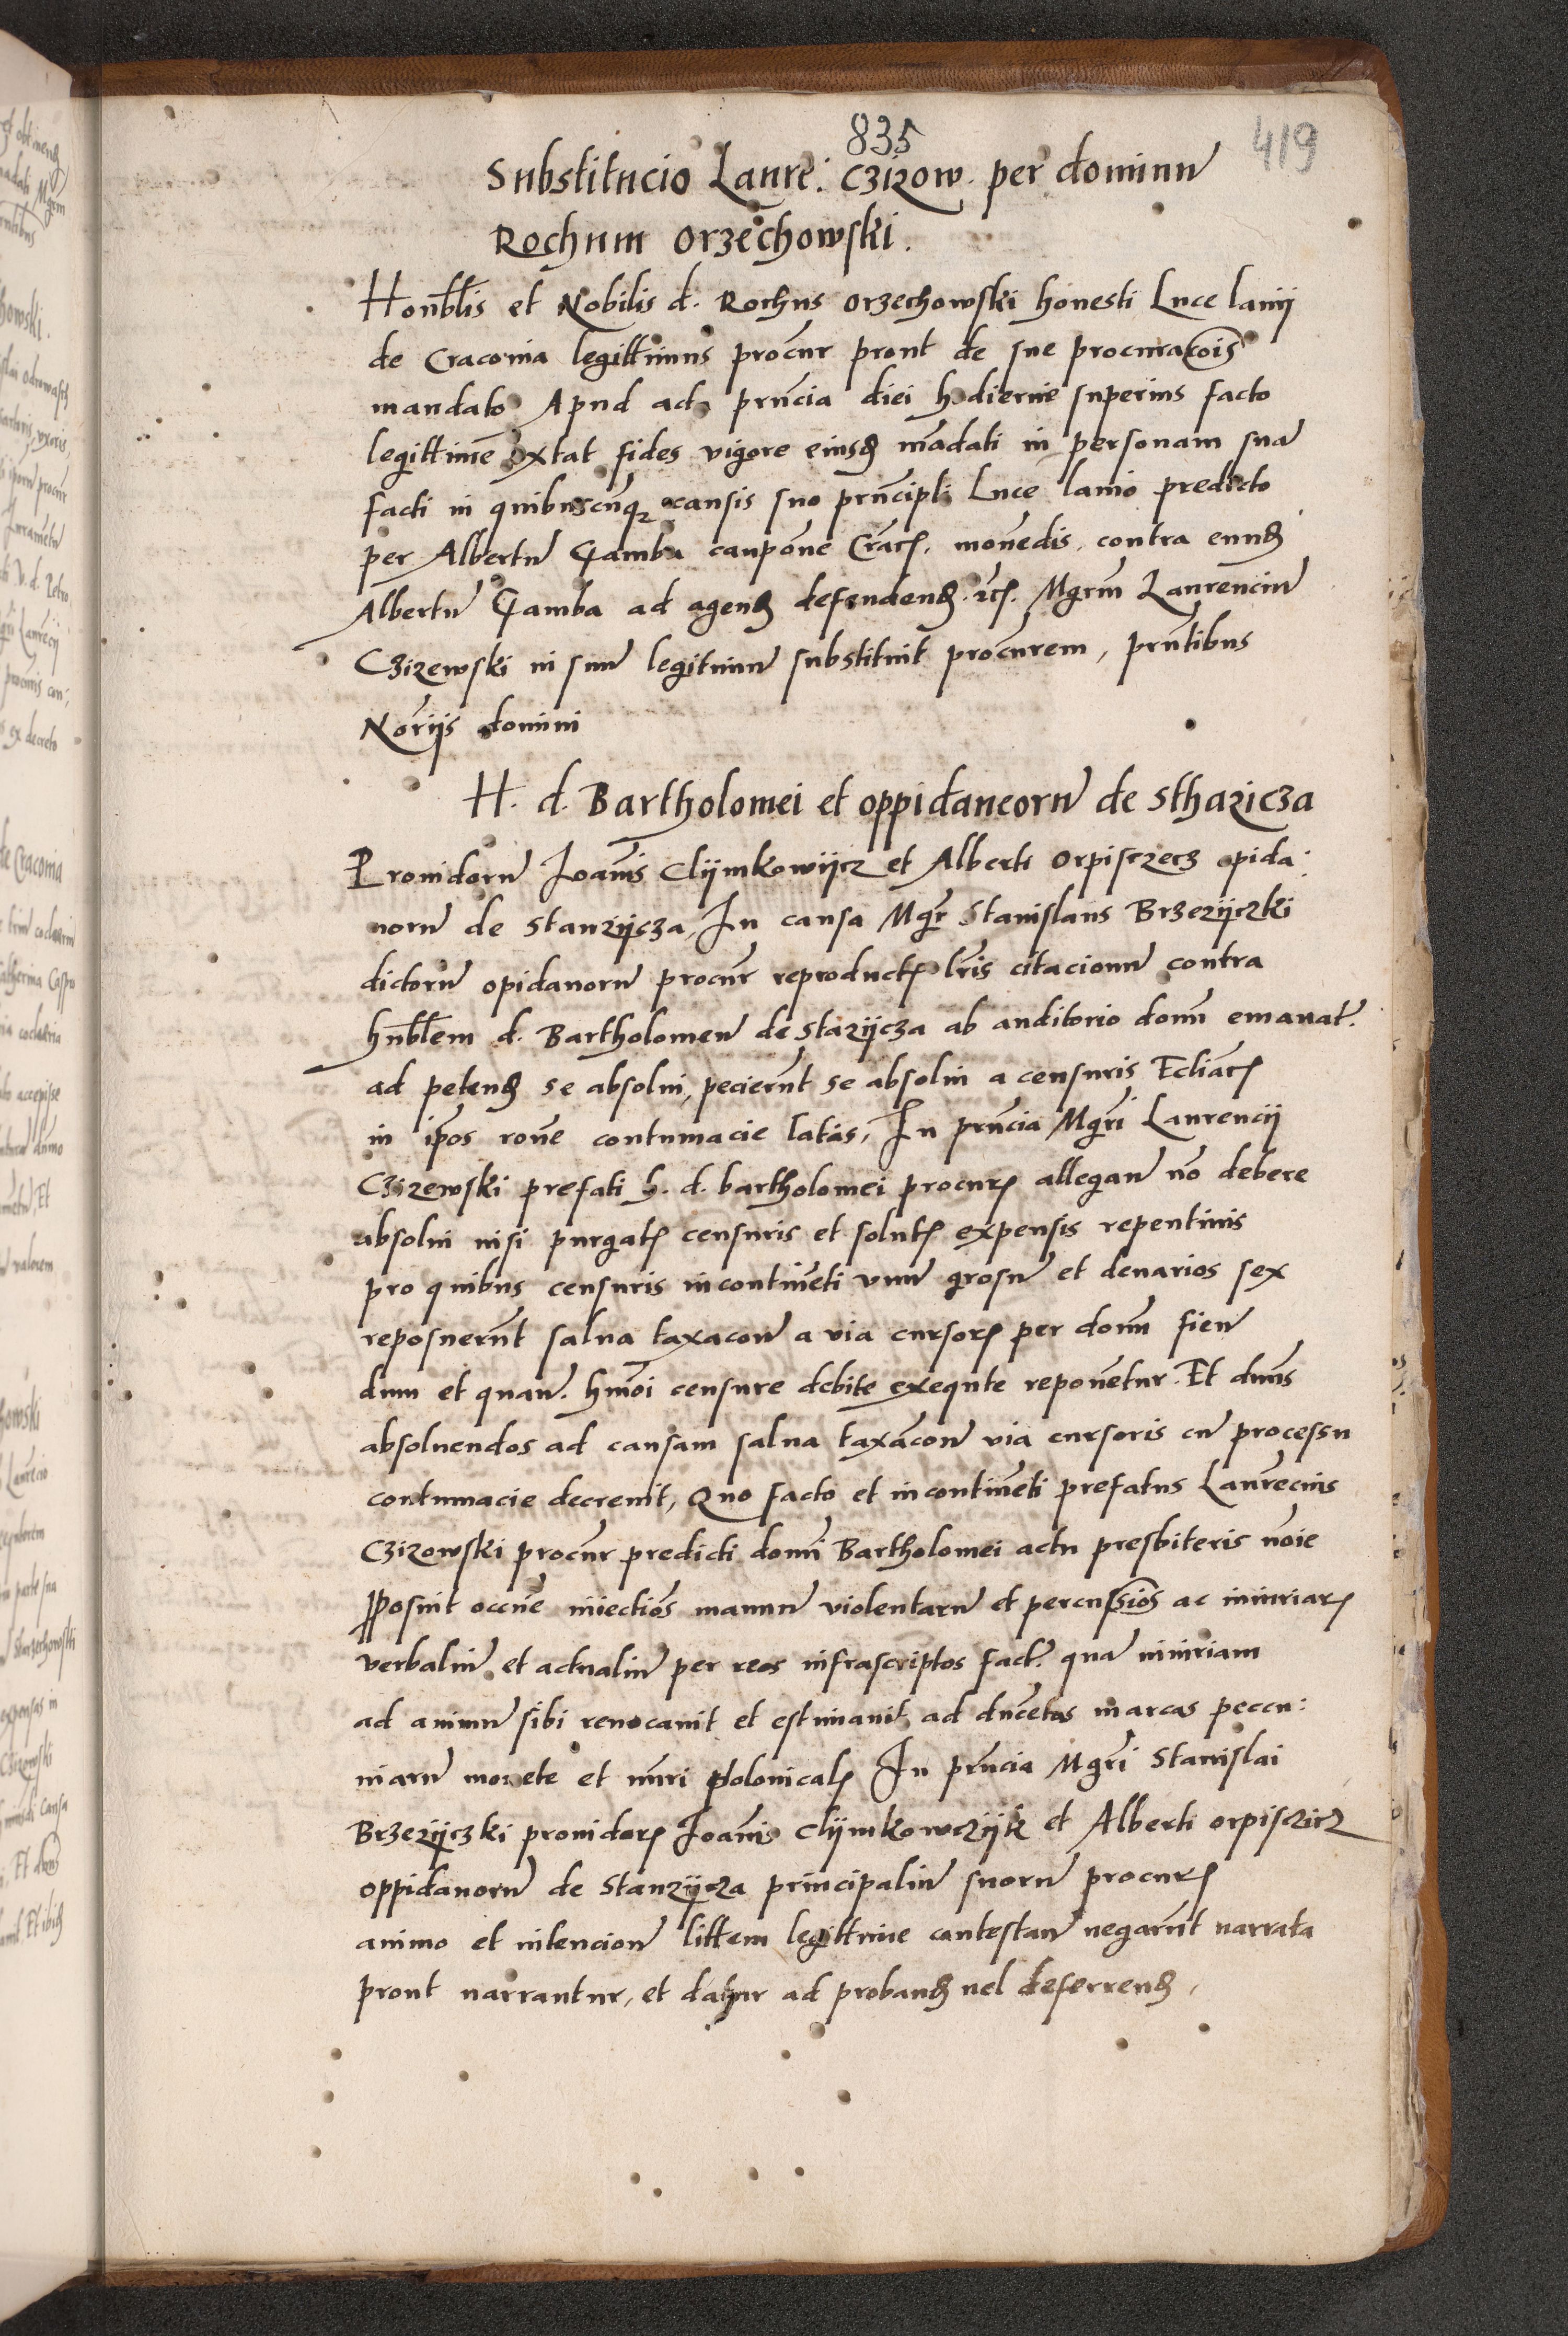 835
419
Substitucio Laure: Czizow. per dominu
Rochum Orzechowski.
Honblis et Nobilis d. Rochus Orzechowski honesti Luce lanij
de Cracovia legittimus procur prout de sue procuracois
mandato Apud acta prncia diei hodierne superius facto
legittime extat fides vigore eiusd madati in personam sua
facti in quibuscuq causis suo prncipli Luce lanio predicto
per Albertu Gamba caupone Crac. movedis contra eund
Albertu Gamba ad agend defendend etc. Mgrm Laurenciu
Czizewski in suu legitimu substituit procurem, prntibus
Norijs domini
H. d. Bartholomei et oppidaneoru de Sthazicza
Providoru Joanis Clijmkowijcz et Alberti Orpisczecz opida:
noru de Stanzijcza, In causa Mgr Stanislaus Brzezijczki
dictoru opidanoru procur reproductis lris citacionu contra
hnblem d. Bartholomeu de Stazijcza ab auditorio domi emanat.
ad petend se absolvi, pecierut se absolvi a censuris Ecliacis
in ipos roне contumacie latas, In prncia Mgri Laurencij
Czizewski prefati h. d. bartholomei procuris allegan no debere
absolvi nisi purgatis censuris et solutis expensis repentinis
pro quibus censuris incontineti unu grosu et denarios sex
reposuerut salva taxacoe a via cursoris per domu fien
dum et quan. hmoi censure debite exequte reponetur. Et dnus
absoluendos ad causam salva taxacoe via cursoris cu processu
contumacie decrevit, Quo facto et incontineti prefatus Laurecius
Czizowski procur predicti domi Bartholomei actu presbiteris noie
pposuit occne iniectios manuu violentaru et percussios ac iniuriaris
verbaliu et actualiu per reos infrascriptos fact. qua iniuriam
ad animu sibi revocavit et estimavit ad ducetas marcas peccu:
niaru monete et nuri polonicalis In prncia Mgri Stanislai
Brzezijczki providoris Joanis Clijmkowczijk et Alberti orpisczicz
oppidanoru de Stanzijcza principaliu suoru procuris
animo et intencione littem legittime contestan negarut narrata
prout narrantur, et datur ad proband uel deferrend,